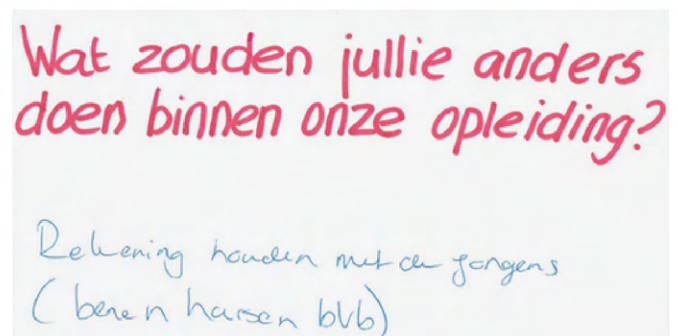 Wat zouden jullie anders
doen binnen onze opleiding?
Rekening houden met de jongens
(benen harsen bvb)